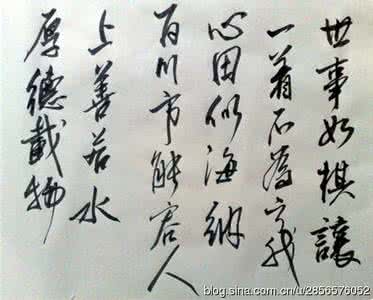 世事如棋讓
一着不為亏我
心田似海納
百川能容人
上善若水
厚德載物
blog.sina.com.cn/u/2856576052